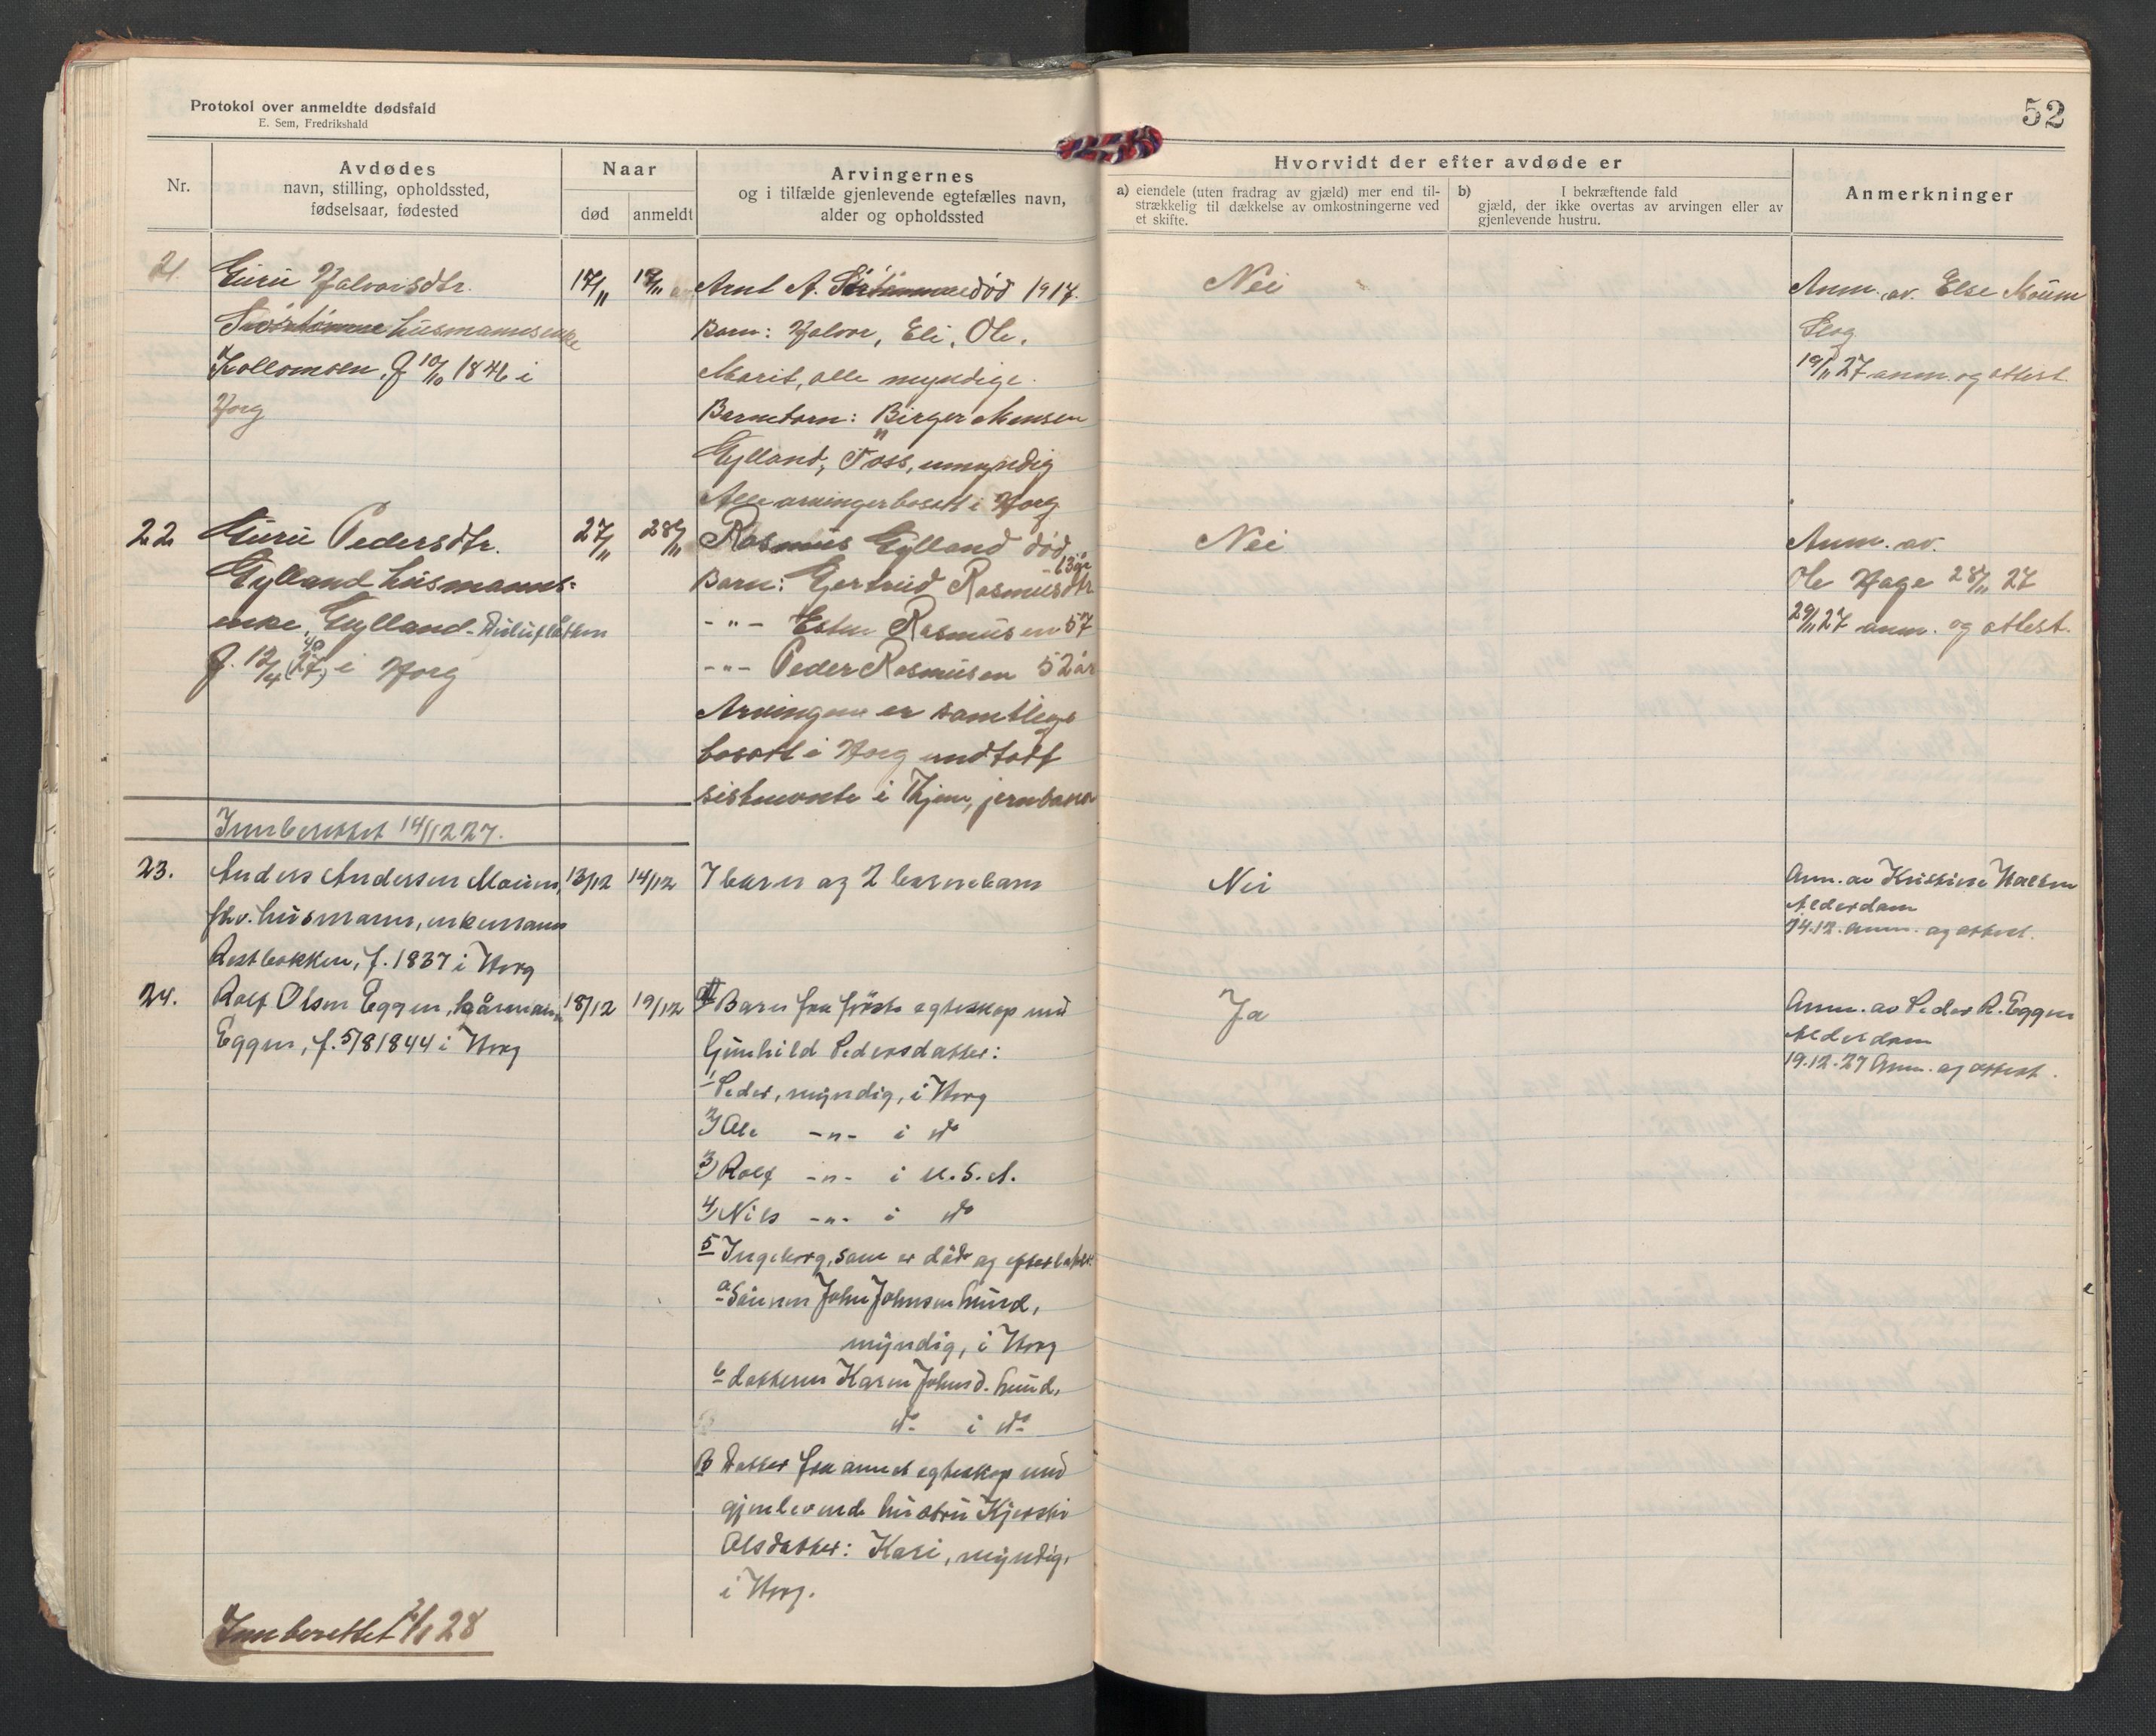 Protokol over anmeldte dødsfald
E. Sem, Fredrikshald
52
Nr.
Avdødes
navn, stilling, opholdssted,
fødselsaar, fødested
Naar
død
anmeldt
Arvingernes
og i tilfælde gjenlevende egtefælles navn,
alder og opholdssted
Hvorvidt der efter avdøde er
a) eiendele (uten fradrag av gjæld) mer end til-
strækkelig til dækkelse av omkostningerne ved
et skifte.
b) I bekræftende fald
gjæld, der ikke overtas av arvingen eller av
gjenlevende hustru.
Anmerkninger
21.
Guru Halvorsdtr.
husmannsenke
f 10/10 1846 i
Horg
17/11
19/11
Arnt A. død 1917.
Barn: Halvor, Eli, Ole,
Marit, alle myndige.
Barnebarn: Birger Monsen
Gylland, Foss, umyndig
Alle arvinger bosatt i Horg
Nei
Anm. av. Else Moum
Flog
19/11 27 anm. og attest.
22
Guru Pedersdtr.
Gylland husmanns-
enke, Gylland-
f. 12/4 i Horg
27/11
28/11
Rasmus Gylland død
Barn: Gertrud Rasmusdtr
-"- Rasmusen 57
-"- Peder Rasmusen 52 år
Arvingene er samtlige
bosatt i Horg undtatt
sistnevnte i
Nei
Anm. av.
Ole Hage 28/11 27
29/11 27 anm. og attest.
Innberettet 14/12 27.
23.
Anders Andersen Moum,
fhv. husmann, enkemann
f. 1837 i Horg
13/12
14/12
7 barn og 2 barnebarn
Nei
Anm. av Kristine
Alderdom
14.12. anm. og attest.
24.
Rolf Olsen Eggen, kårmann
Eggen, f. 5/8 1844 i Horg
18/12
19/12
A Barn fra første egteskap med
Gunhild Pedersdatter:
1 Peder, myndig, i Horg
2) Ole -"- i do
3) Rolf -"- i U.S.A.
4) Nils -"- i do
5 Ingeborg, som er død og efterlater:
a Sønnen John Johnsen Lund,
myndig, i Horg
b datteren Karen Johnsd. Lund,
do i do
B Datter fra annet egteskap med
gjenlevende hustru Kjersti
Olsdatter: Kari, myndig,
i Horg.
Ja
Anm. av Peder R. Eggen
Alderdom
19.12.27 Anm. og attest.
Innberettet 2/1 28